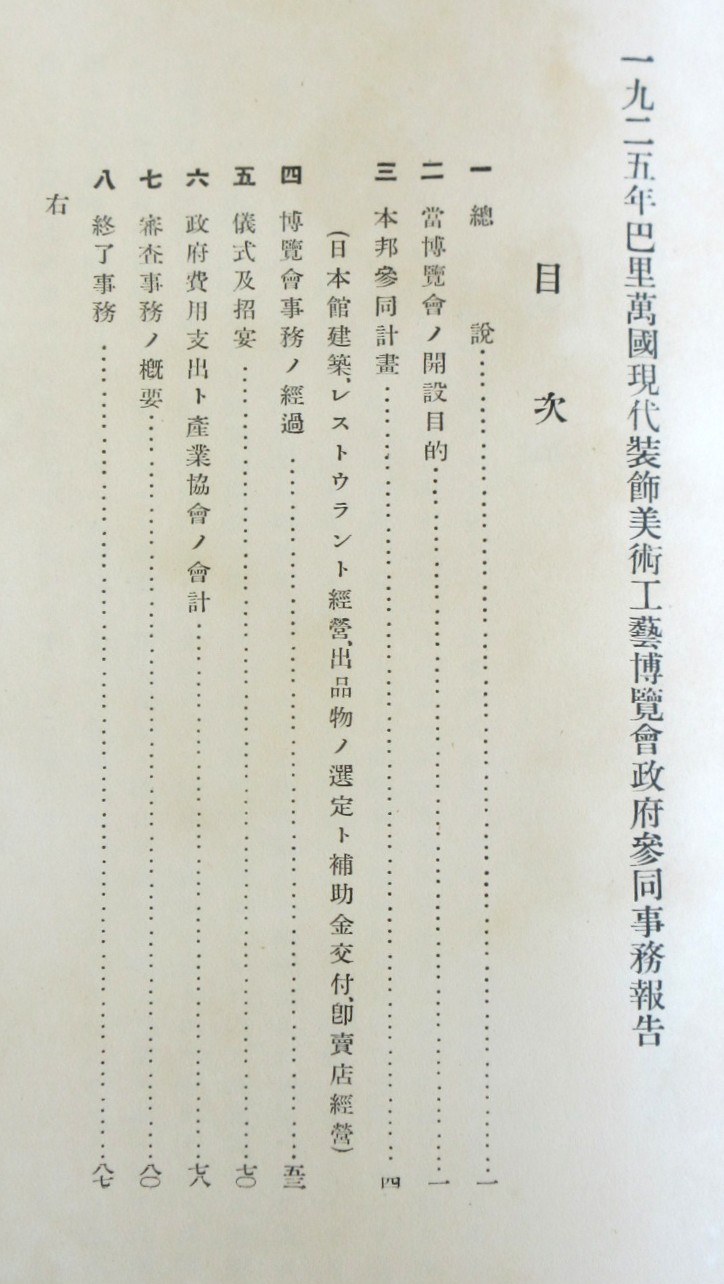 一九二五年巴里萬國現代裝飾美術工藝博覽會政府參同事務報告
目次
一 總說……一
二 當博覽會ノ開設目的……一
三 本邦參同計畫……四
(日本館建築、レストウラント經營、出品物ノ選定ト補助金交付、卽賣店經營)
四 博覽會事務ノ經過……五三
五 儀式及招宴……七〇
六 政府費用支出ト產業協會ノ會計……七八
七 審査事務ノ槪要……八〇
八 終了事務……八七
右